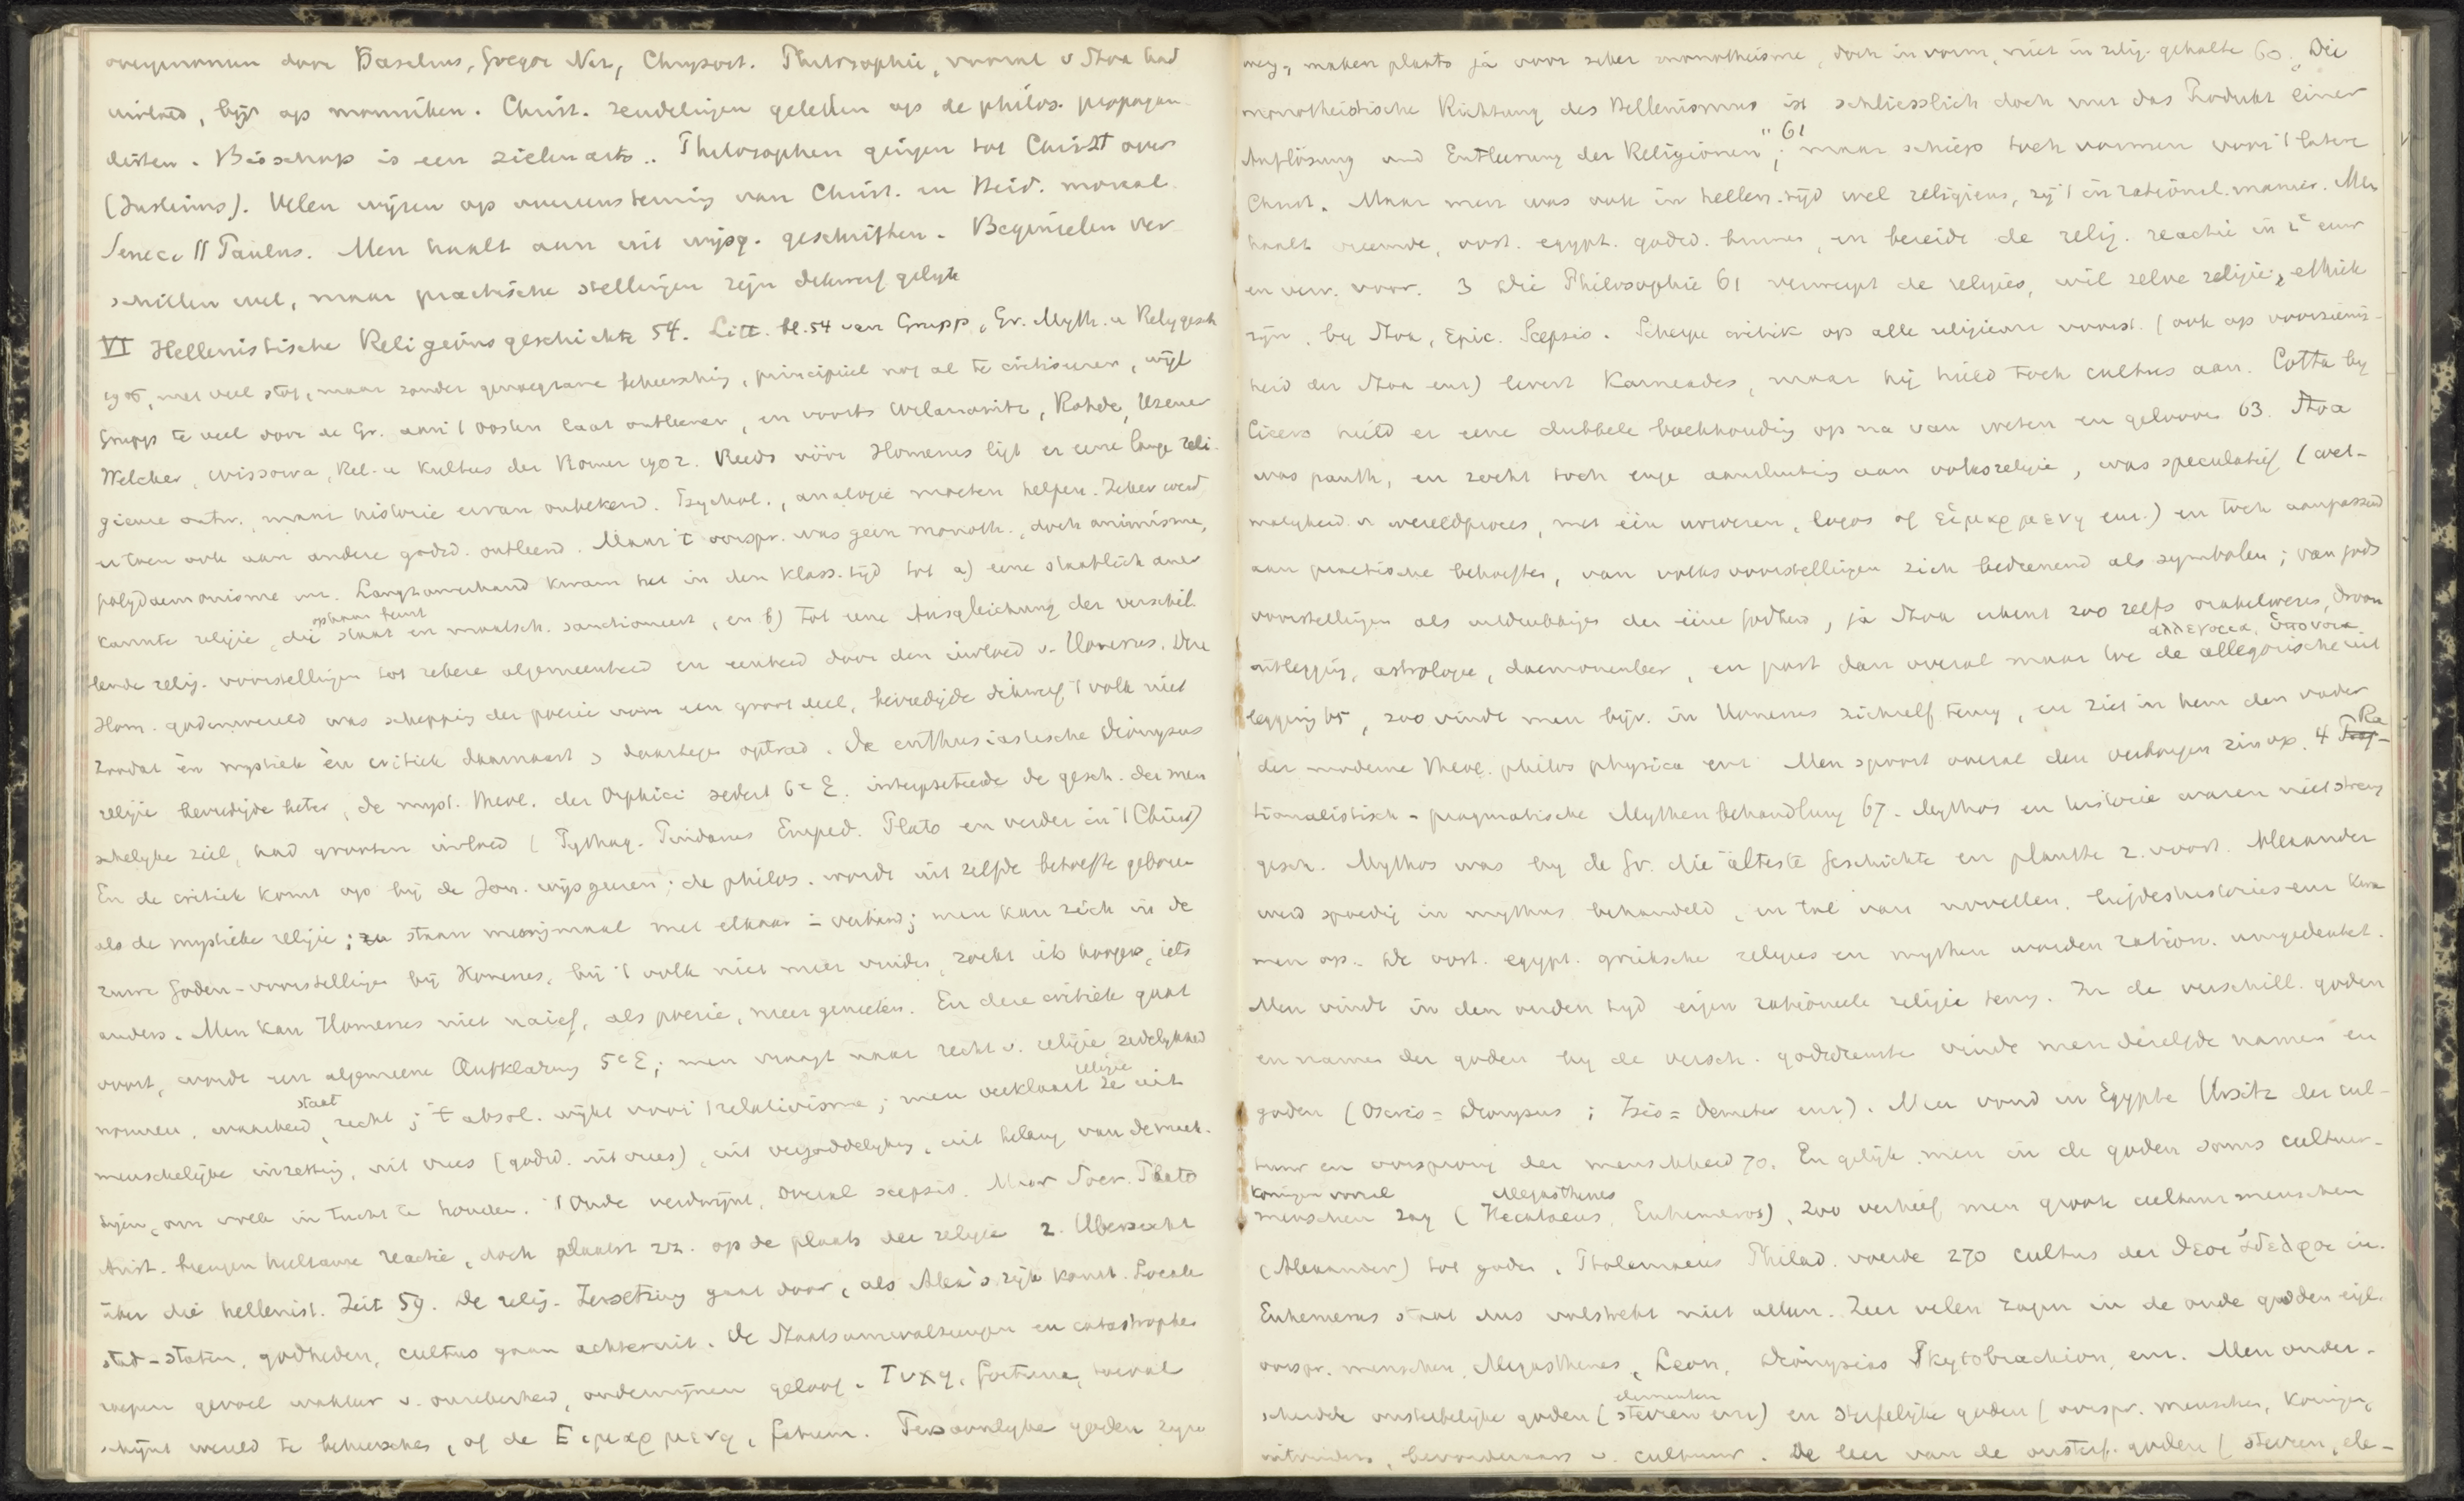 overgenomen door Baselius, Gregor Naz, Chrysost. Philosophie, vooral v Stoa had
invloed, bijv op monniken. Christ. zendelingen geleken op de philos. propagan-
disten. Bisschop is een zielenarts.. Philosophen gingen tot Christ over
(Justinus). Velen wijzen op overeenstemming van Christ. en Heid. moraal.
Seneca || Paulus. Men haalt aan uit wijsg. geschriften. Beginselen ver-
schillen wel, maar practische stellingen zijn dikwerf gelijk
VI Hellenistische Religionsgeschichte 54. Litt. bl. 54 van Grupp, Gr. Myth. u Religgesch
1906, met veel stof, maar zonder genoegzame beheersching, principieel nog al te critiseren, wijl
Grupp te veel door de Gr. aan 't oosten laat ontleenen, en voorts Wilamowitz, Rohde, Usener
Welcker, Wissowa, Rel. u Kultus der Romer 1902. Reeds vóór Homerus ligt er eene lange reli-
gieuse ontw., maar historie ervan onbekend. Psychol., analogie moeten helpen. Zeker werd
er toen ook aan andere godsd. ontleend. Maar 't oorspr. was geen monoth., doch animisme,
polydaemonisme enz. Langzamerhand kwam het in den klass. tijd tot a) eene staatlich aner
kannte religie, die staat en maatsch. sanctioneert, en b) tot eene Ausgleichung der verschil-
lende relig. voorstellingen tot zekere algemeenheid en eenheid door den invloed v. Homerus. Deze
Hom. godenwereld was schepping der poezie voor een groot deel, bevredigde dikwerf 't volk niet
zoodat èn mystiek èn critiek daarnaast > daartegen optrad. De enthusiastische Dionysus
religie bevredigde beter, de myst. theol. der Orphici sedert 6e E. interpreteerde de gesch. der men
schelijke ziel, had grooten invloed (Pythag. Pindarus Emped. Plato en verder in 't Christ)
En de critiek komt op bij de Ion. wijsgeeren; de philos. wordt uit zelfde behoefte geboren
als de mystieke religie; staan menigmaal met elkaar in verband; men kan zich in de
ruwe Goden-voorstellingen bij Homerus, bij 't volk niet meer vinden, zoekt iets hoogers, iets
anders. Men kan Homerus niet naief, als poezie, meer genieten. En deze critiek gaat
voort, wordt een algemeene Aufklärung 5e E; men vraagt naar recht v. religie zedelijkheid
normen, waarheid, staat recht; 't absol. wijkt voor 't relativisme; men verklaart religie uit
menschelijke inzetting, uit vrees (godsd. uit vrees), uit vergoddelijking, uit belang van de mach-
tigen, om volk in tucht te houden. 't Oude verdwijnt, overal scepsis. Maar Socr. Plato
Arist. brengen heilzame reactie, doch plaatst zz. op de plaats der religie 2. Übersicht
über die hellenist. Zeit 59. De relig. Zersetzung gaat door, als Alex's rijk komt. Locale
stad-staten, godheden, cultus gaan achteruit. De Staatsomwalzingen en catastrophes
roepen gevoel wakker v. onzekerheid, ondermijnen geloof. Τυχη, fortuna, toeval
schijnt wereld te beheerschen, of de Ειμαρμενη, fatum. Persoonlijke goden zijn
weg, maken plaats ja voor zeker monotheisme, doch in vorm, niet in relig. gehalte 60. „Die
monotheistische Richtung des Hellenismus ist schliesslich doch nur das Produkt einer
Auflösung und Entleerung der Religionen" 61; maar schiep toch vormen voor 't latere
Christ. Maar men was ook in hellen. tijd wel religieus, zij 't in rationel. manier. Men
haalt vreemde, oost. egypt. godsd. binnen, en bereidt de relig. reactie in 2e eeuw
en verv. voor. 3 Die Philosophie 61 verwerpt de religies, wil zelve religie, ethiek
zijn, bij Stoa, Epic. Scepsis. Scherpe critiek op alle religieuse voorst. (ook op voorzienig-
heid der Stoa enz) levert Karneades, maar hij hield toch cultus aan. Cotta bij
Cicero hield er eene dubbele boekhouding op na van weten en gelooven 63. Stoa
was panth. en zocht toch enge aansluiting aan volksreligie, was speculatief (wet-
matigheid v wereldproces, met één urwezen, logos of ειμαρμενη enz.) en toch aanpassend
aan practische behoeften, van volksvoorstellingen zich bedienend als symbolen; van gods
voorstellingen als uitdrukkingen der ééne Godheid, ja Stoa erkent zoo zelfs orakelwezen, droom
uitlegging, astrologie, daemonenleer, en past dan overal maar toe de allegorische uit
legging 65, zoo vindt men bijv. in Homerus zichzelf terug, en ziet in hem den vader
der moderne theol. philos physica enz. Men spoort overal den verborgen zin op. 4 Ra-
tionalistisch-pragmatische Mythenbehandlung 67. Mythos en historie waren niet streng
gesch. Mythos was bij de Gr. die älteste Geschichte en plantte z. voort. Alexander
werd spoedig in mythus behandeld, en tal van novellen, liefdeshistories enz kwa
men op. De oost. egypt. grieksche religies en mythen worden ration. umgedeutet.
Men vindt in den ouden tijd eigen rationeele religie terug. In de verschill. goden
en namen der goden bij de versch. godsdiensten vindt men dezelfde namen en
goden (Osiris = Dionysus; Isis = Demeter enz). Men vond in Egypte Ursitz der cul-
tuur en oorsprong der menschheid 70. En gelijk men in de goden soms cultuur-
koningen vooral
menschen zag (Hecataeus, Megasthenes Euhemeros), zoo verhief men groote cultuurmenschen
(Alexander) tot goden. Ptolemaeus Philad. voerde 270 cultus der θεοι ἀδελφοι in.
Euhemerus staat dus volstrekt niet alleen. Zeer velen zagen in de oude godden eigl.
oorspr. menschen, Megasthenes, Leon, Dionysius Skytobrachion, enz. Men onder-
scheidde onsterfelijke goden (sterren elementen enz) en sterfelijke goden (oorspr. menschen, koningen,
uitvinders, bevorderaars v. cultuur. De leer van de onsterf. goden (sterren, ele-